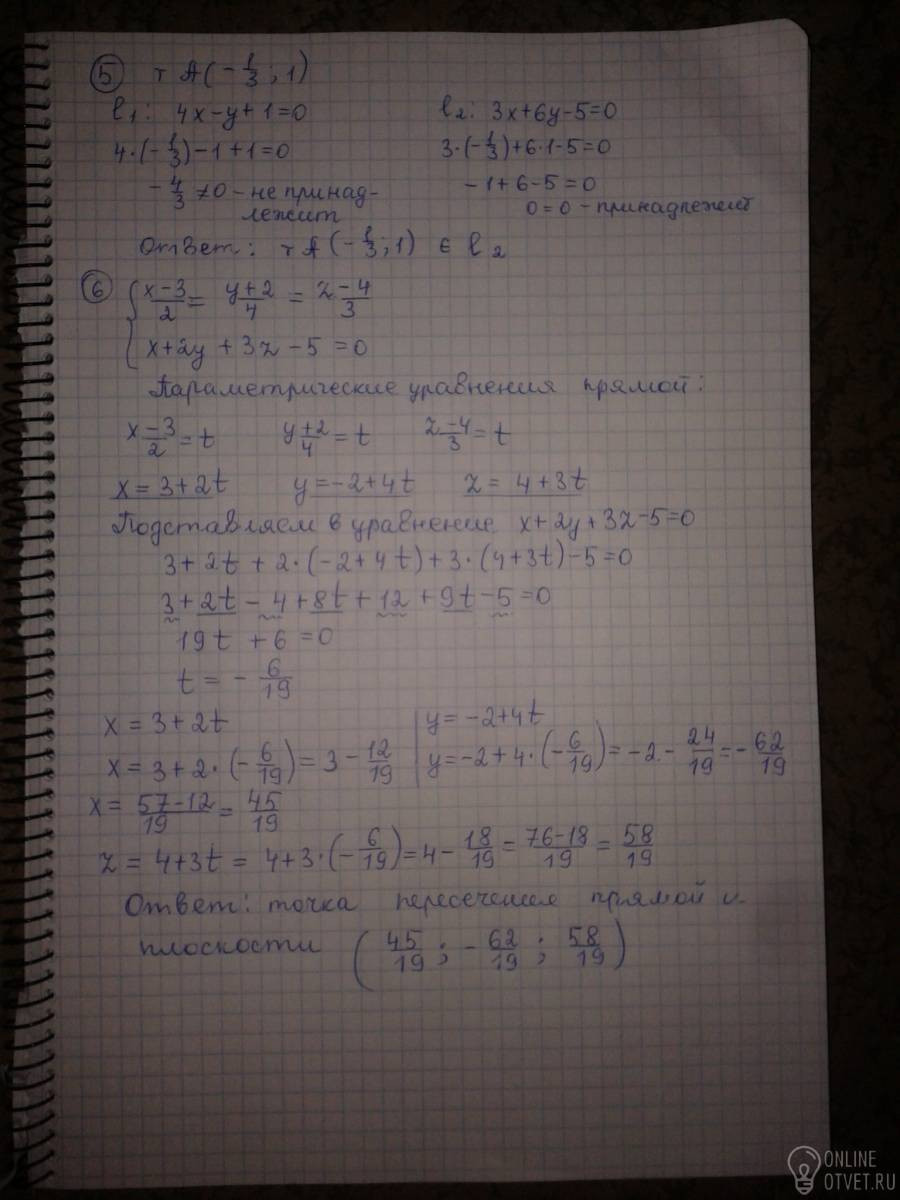 5 т A(-1/3; 1)
l₁: 4x-y+1=0 l₂: 3x+6y-5=0
4·(-1/3)-1+1=0 3·(-1/3)+6·1-5=0
-4/3≠0 - не принад- -1+6-5=0
лежит 0=0 - принадлежит
Ответ: т A(-1/3; 1) ∈ l₂
6 { (x-3)/2 = (y+2)/4 = (z-4)/3
x+2y+3z-5=0
Параметрические уравнения прямой:
(x-3)/2=t (y+2)/4=t (z-4)/3=t
x=3+2t y=-2+4t z=4+3t
Подставляем в уравнение x+2y+3z-5=0
3+2t+2·(-2+4t)+3·(4+3t)-5=0
3+2t-4+8t+12+9t-5=0
19t+6=0
t=-6/19
x=3+2t | y=-2+4t
x=3+2·(-6/19)=3-12/19 | y=-2+4·(-6/19)=-2-24/19=-62/19
x=(57-12)/19=45/19
z=4+3t=4+3·(-6/19)=4-18/19=(76-18)/19=58/19
Ответ: точка пересечения прямой и
плоскости (45/19; -62/19; 58/19)
ONLINE
OTVET.RU